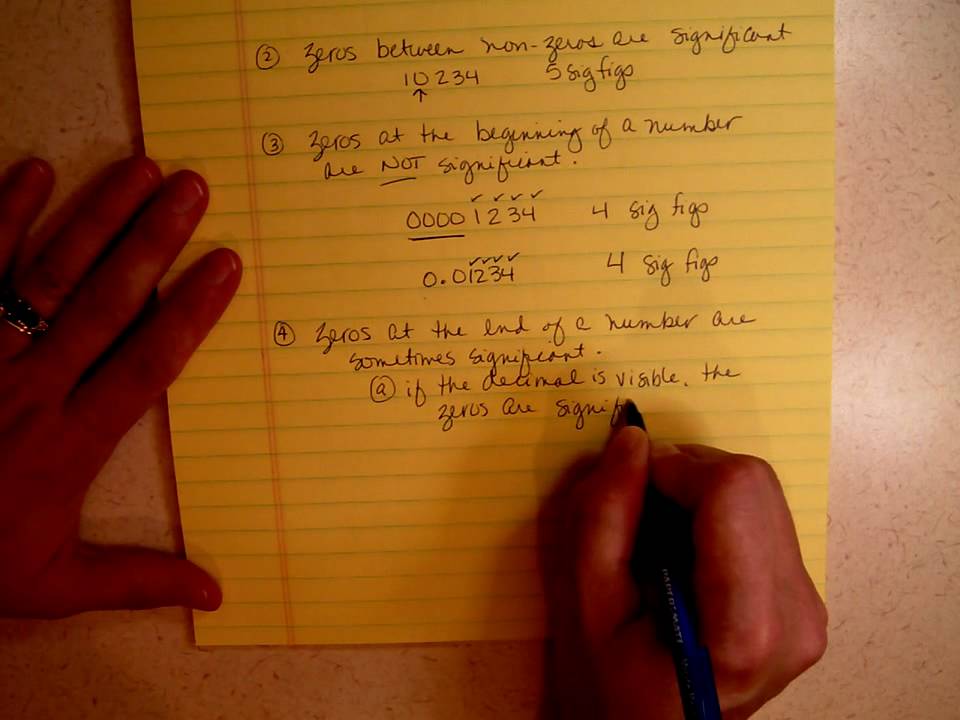 ② Zeros between non-zeros are significant
10234 5 sig figs
↑
③ Zeros at the beginning of a number
are NOT significant.
00001234 4 sig figs
0.01234 4 sig figs
④ Zeros at the end of a number are
sometimes significant.
ⓐ if the decimal is visible, the
zeros are signif